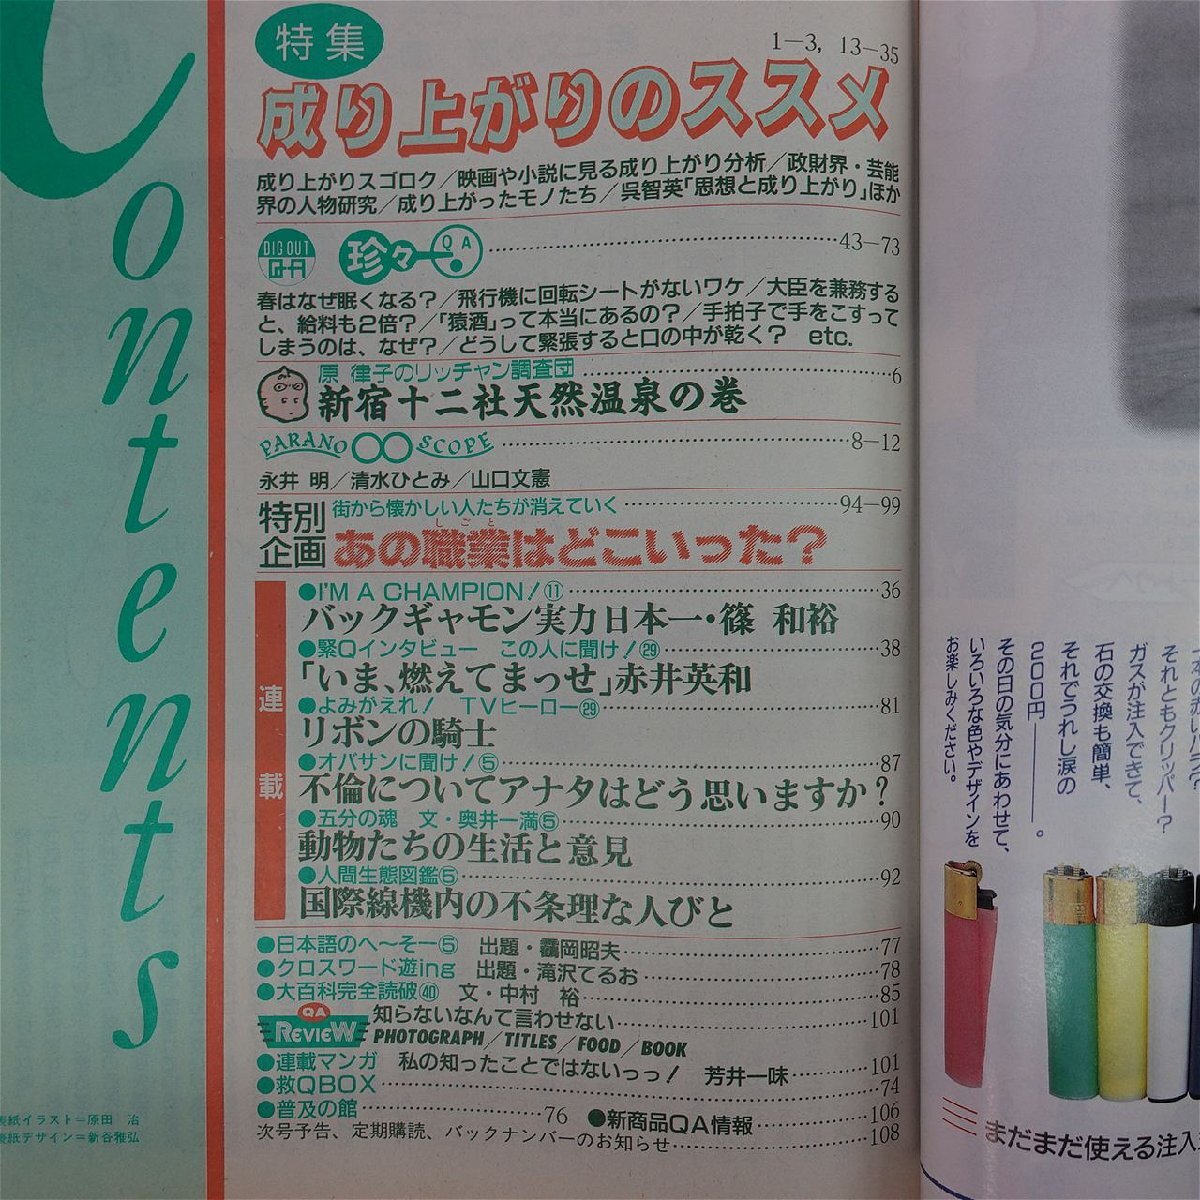 Contents
特集
1−3, 13−35
成り上がりのススメ
成り上がりスゴロク／映画や小説に見る成り上がり分析／政財界・芸能
界の人物研究／成り上がったモノたち／呉智英「思想と成り上がり」ほか
DIG OUT Q-A
珍々QA 43−73
春はなぜ眠くなる？／飛行機に回転シートがないワケ／大臣を兼務する
と、給料も2倍？／「猿酒」って本当にあるの？／手拍子で手をこすって
しまうのは、なぜ？／どうして緊張すると口の中が乾く？ etc.
原 律子のリッチャン調査団 6
新宿十二社天然温泉の巻
PARANO SCOPE 8−12
永井 明／清水ひとみ／山口文憲
特別企画
街から懐かしい人たちが消えていく 94−99
しごと
あの職業はどこいった？
連載
●I'M A CHAMPION！⑪ 36
バックギャモン実力日本一・篠 和裕
●緊Qインタビュー この人に聞け！㉙ 38
「いま、燃えてまっせ」赤井英和
●よみかえれ！ TVヒーロー㉙ 81
リボンの騎士
●オバサンに聞け！⑤ 87
不倫についてアナタはどう思いますか？
●五分の魂 文・奥井一満⑤ 90
動物たちの生活と意見
●人間生態図鑑⑤ 92
国際線機内の不条理な人びと
●日本語のへ〜そー⑤ 出題・靍岡昭夫 77
●クロスワード遊ing 出題・滝沢てるお 78
●大百科完全読破㊵ 文・中村 裕 85
QA REVIEW
知らないなんて言わせない 101
PHOTOGRAPH／TITLES／FOOD／BOOK
●連載マンガ 私の知ったことではないっっ！ 芳井一味 101
●救QBOX 74
●普及の館 76 ●新商品QA情報 106
次号予告、定期購読、バックナンバーのお知らせ 108
表紙イラスト＝原田 治
表紙デザイン＝新谷雅弘
それともクリッパー？
ガスが注入できて、
石の交換も簡単、
それでうれし涙の
200円——。
その日の気分にあわせて、
いろいろな色やデザインを
お楽しみください。
まだまだ使える注入